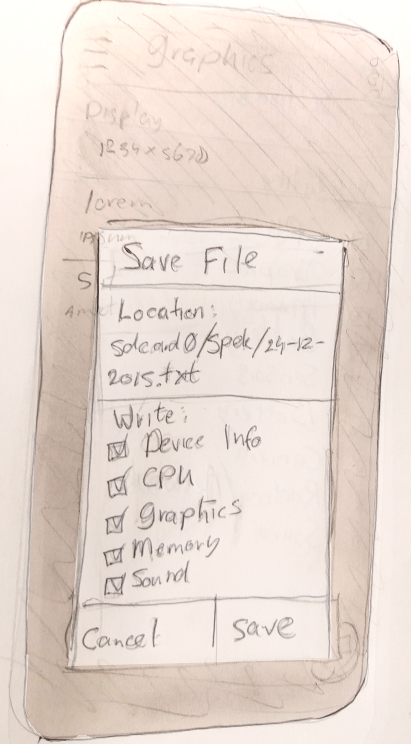 graphics
Display
1234x5678
lorem
Save File
Location:
sdcard0/Spek/24-12-
2015.txt
Write:
Device Info
CPU
graphics
Memory
Sound
Cancel
Save